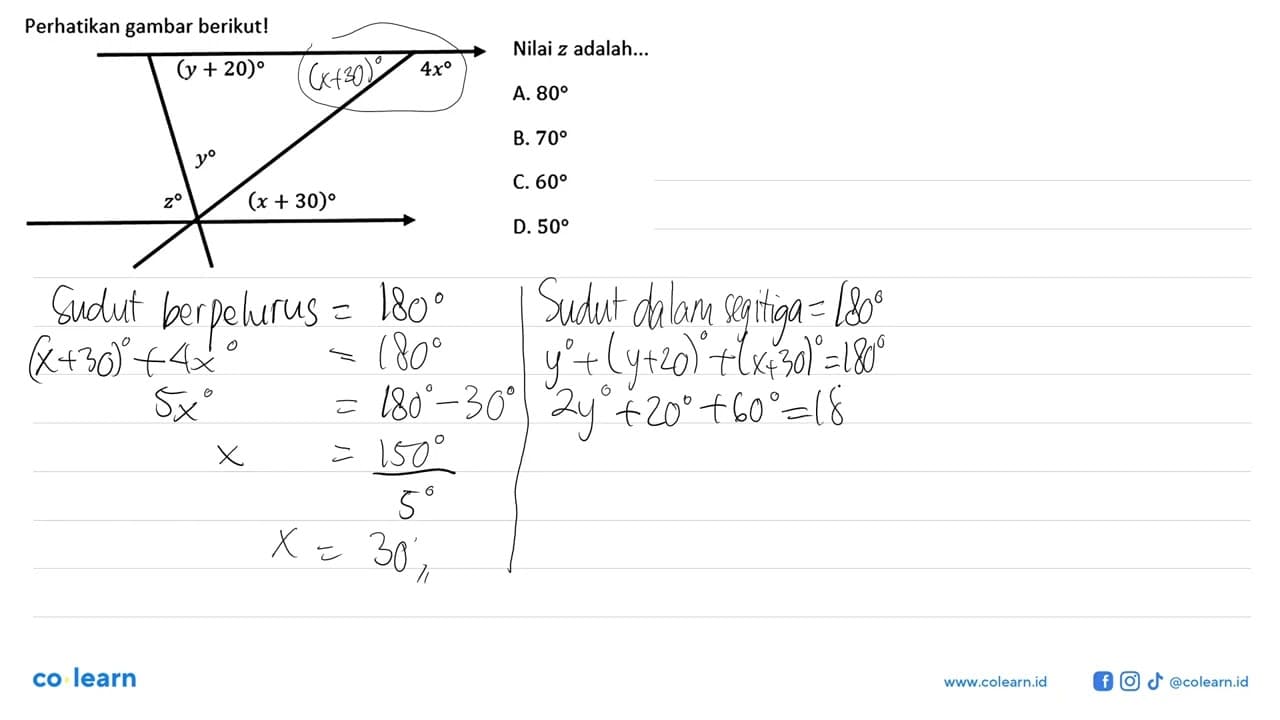 Perhatikan gambar berikut!
(y + 20)°
(x+30)°
4x°
y°
z°
(x + 30)°
Nilai z adalah...
A. 80°
B. 70°
C. 60°
D. 50°
Sudut berpelurus = 180°
(x+30)° + 4x° = 180°
5x° = 180° - 30°
x = 150°
5°
x = 30°,,
Sudut dalam segitiga = 180°
y° + (y+20)° + (x+30)° = 180°
2y° + 20° + 60° = 18
co·learn
www.colearn.id
@colearn.id